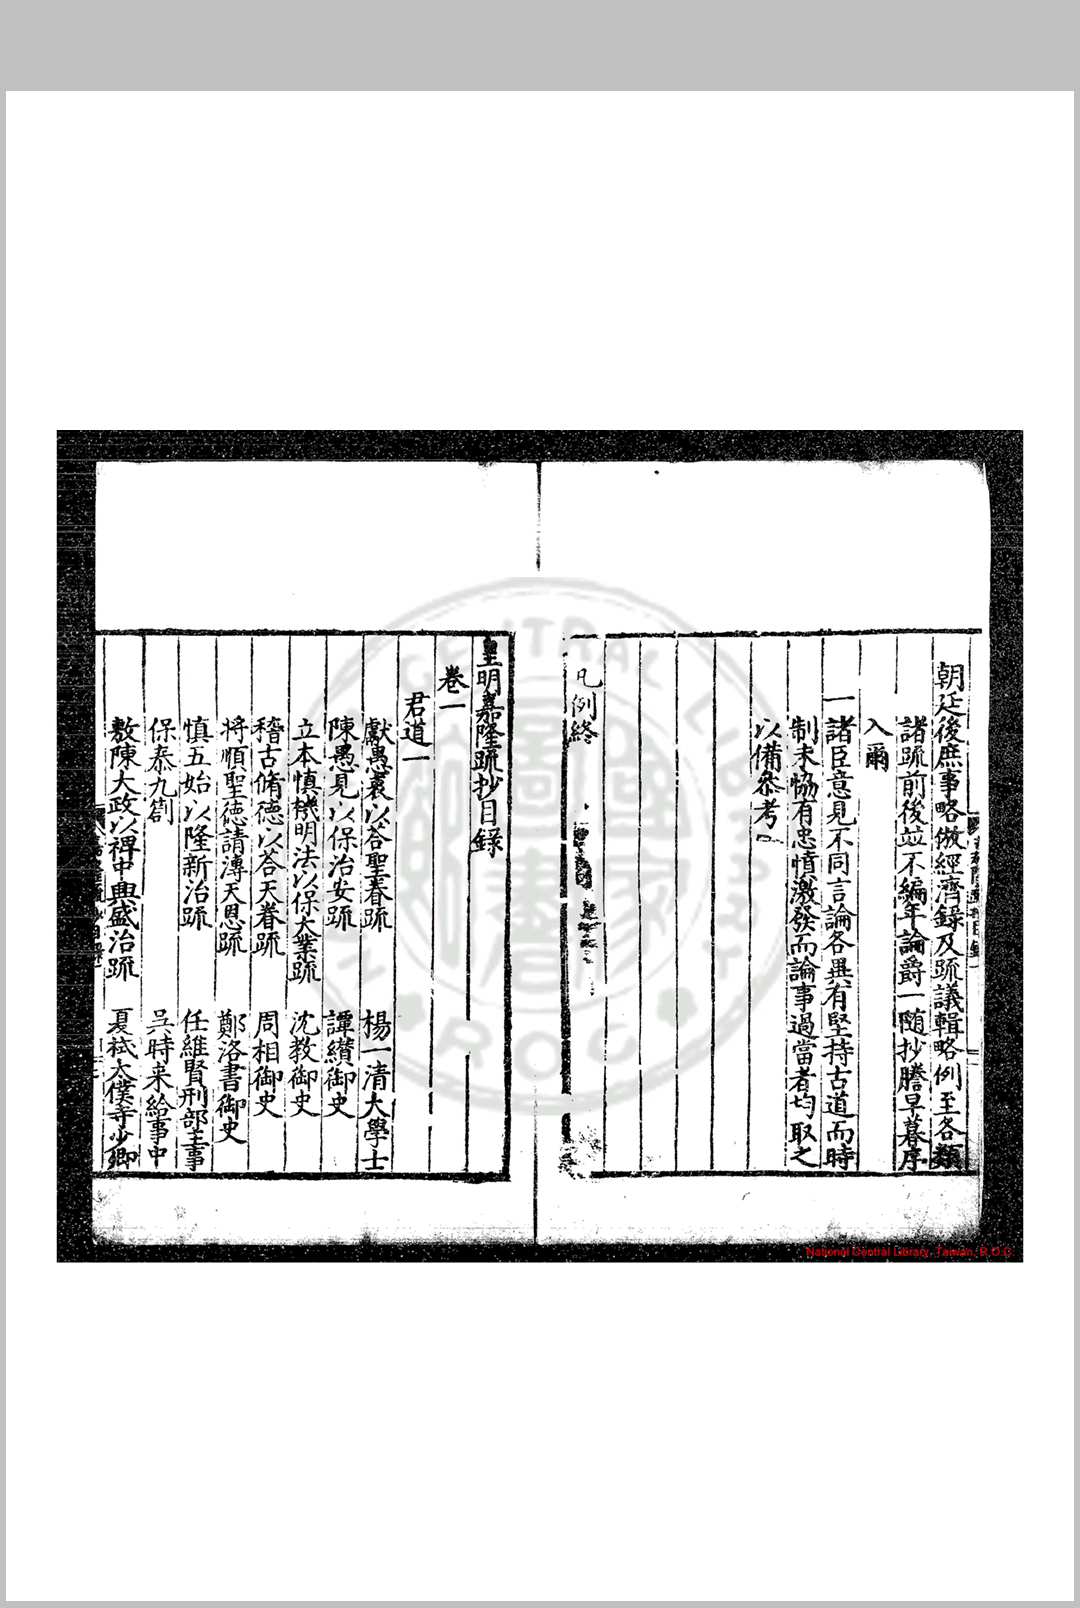 朝廷後庶事略倣經濟錄及疏議輯略例至各類
諸疏前後竝不編年論爵一随抄謄早暮序
入爾
一諸臣意見不同言論各異有堅持古道而時
制未恊有忠憤激發而論事過當者均取之
以備叅考
凡例終
皇明嘉隆疏抄目錄
卷一
君道一
獻愚衷以荅聖眷疏 楊一清大學士
陳愚見以保治安疏 譚纘御史
立本慎機明法以保大業疏 沈教御史
稽古脩德以荅天眷疏 周相御史
将順聖德請漙天恩疏 鄭洛書御史
慎五始以隆新治疏 任維賢刑部主事
保泰九劄 吳時来給事中
敷陳大政以裨中興盛治疏 夏栻太僕寺少卿
National Central Library, Taiwan, R.O.C.